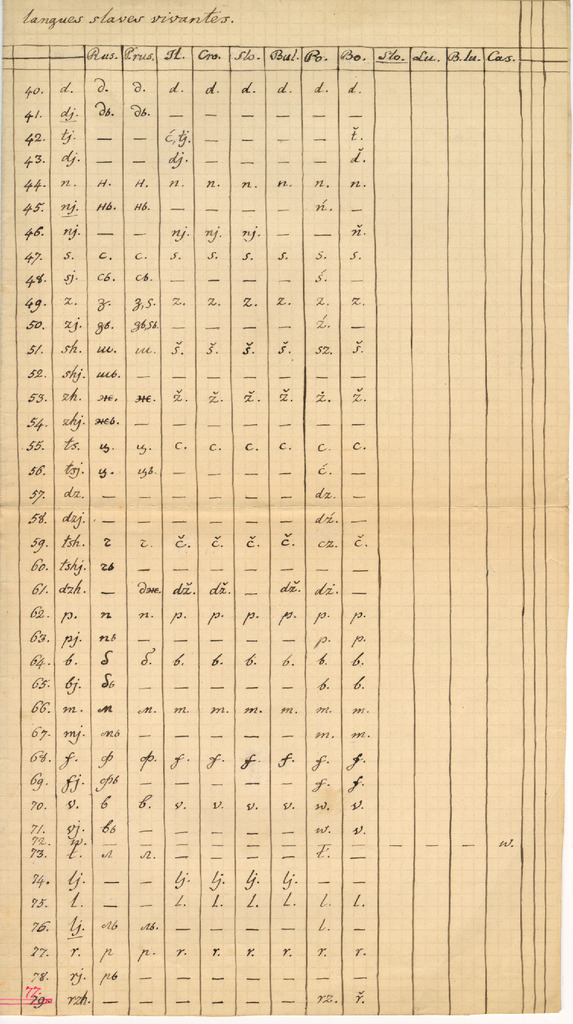 langues slaves vivantes.
Rus. P.rus. Il. Cro. Slo. Bul. Po. Bo. Slo. Lu. B.lu. Cas.
40. d. д. д. d. d. d. d. d. d.
41. dj. дь. дь. — — — — — —
42. tj. — — ć,tj. — — — — ť.
43. dj. — — dj. — — — — ď.
44. n. н. н. n. n. n. n. n. n.
45. nj. нь. нь. — — — — ń. —
46. nj. — — nj. nj. nj. — — ň.
47. s. с. с. s. s. s. s. s. s.
48. sj. сь. сь. — — — — ś. —
49. z. з. з,s. z. z. z. z. z. z.
50. zj. зь. зь,sь. — — — — ź. —
51. sh. ш. ш. š. š. š. š. sz. š.
52. shj. шь. — — — — — — —
53. zh. ж. ж. ž. ž. ž. ž. ż. ž.
54. zhj. жь. — — — — — — —
55. ts. ц. ц. c. c. c. c. c. c.
56. tsj. ц. ць. — — — — ć. —
57. dz. — — — — — — dz. —
58. dzj. — — — — — — dź. —
59. tsh. ч ч. č. č. č. č. cz. č.
60. tshj. чь — — — — — — —
61. dzh. — дж. dž. dž. — dž. dż. —
62. p. п п. p. p. p. p. p. p.
63. pj. пь — — — — — p. p.
64. b. б б. b. b. b. b. b. b.
65. bj. бь — — — — — b. b.
66. m. м м. m. m. m. m. m. m.
67. mj. мь — — — — — m. m.
68. f. ф ф. f. f. f. f. f. f.
69. fj. фь — — — — — f. f.
70. v. в в. v. v. v. v. w. v.
71. vj. вь — — — — — w. v.
72. w. — — — — — — — — — — — w.
73. ł. л л. — — — — ł. —
74. lj. — — lj. lj. lj. lj. — —
75. l. — — l. l. l. l. l. l.
76. lj. ль ль. — — — — l. —
77. r. р р. r. r. r. r. r. r.
78. rj. рь — — — — — — —
77.
79. rzh. — — — — — — rz. ř.